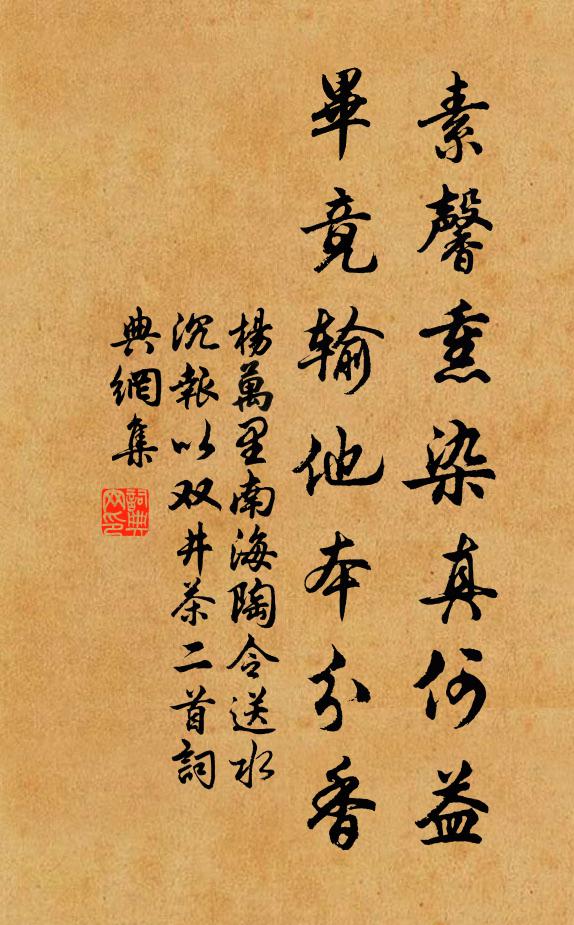 素馨熏染真何益
畢竟輸他本分香
楊萬里南海陶令送水
沉報以双井茶二首詞
典網集
詞典網印